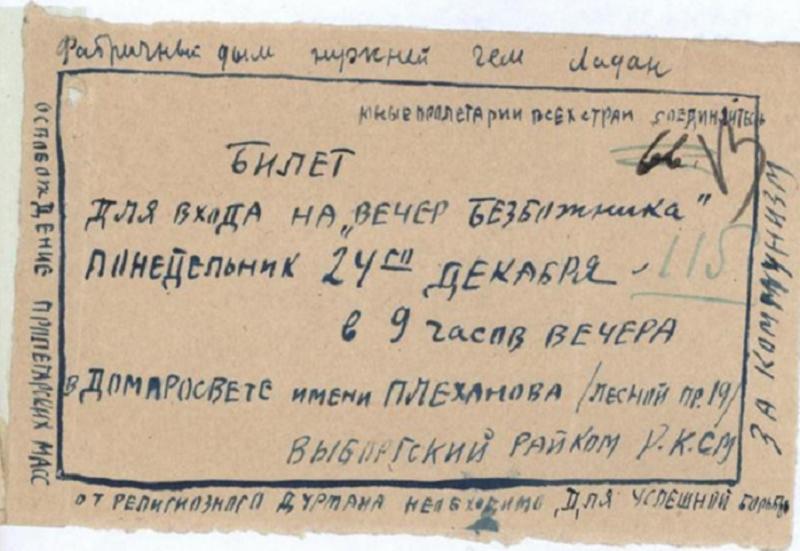 Фабричный дым нужней чем Ладан
Юные пролетарии всех стран соединяйтесь
БИЛЕТ
ДЛЯ ВХОДА НА „ВЕЧЕР БЕЗБОЖНИКА"
ПОНЕДЕЛЬНИК 24го ДЕКАБРЯ - 115
в 9 часов ВЕЧЕРА
в ДОМПРОСВЕТЕ имени ПЛЕХАНОВА /ЛЕСНОЙ пр. 19/
ВЫБОРГСКИЙ РАЙКОМ Р.К.С.М
ОСВОБОЖДЕНИЕ ПРОЛЕТАРСКИХ МАСС
ОТ РЕЛИГИОЗНОГО ДУРМАНА НЕОБХОДИМО ДЛЯ УСПЕШНОЙ БОРЬБЫ
ЗА КОММУНИЗМ